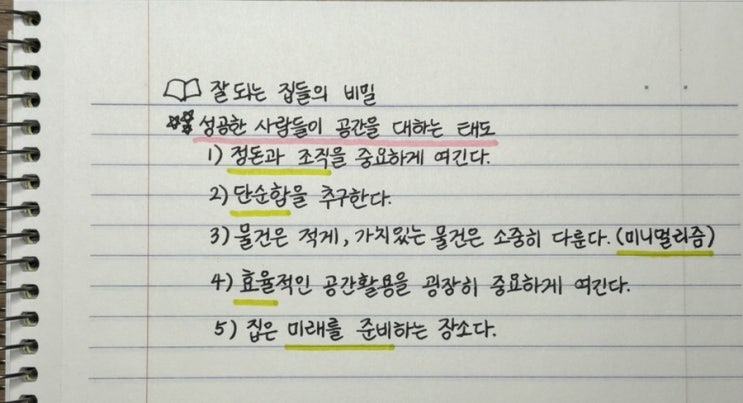 잘되는 집들의 비밀
성공한 사람들이 공간을 대하는 태도
1) 정돈과 조직을 중요하게 여긴다.
2) 단순함을 추구한다.
3) 물건은 적게, 가치있는 물건은 소중히 다룬다. (미니멀리즘)
4) 효율적인 공간활용을 굉장히 중요하게 여긴다.
5) 집은 미래를 준비하는 장소다.